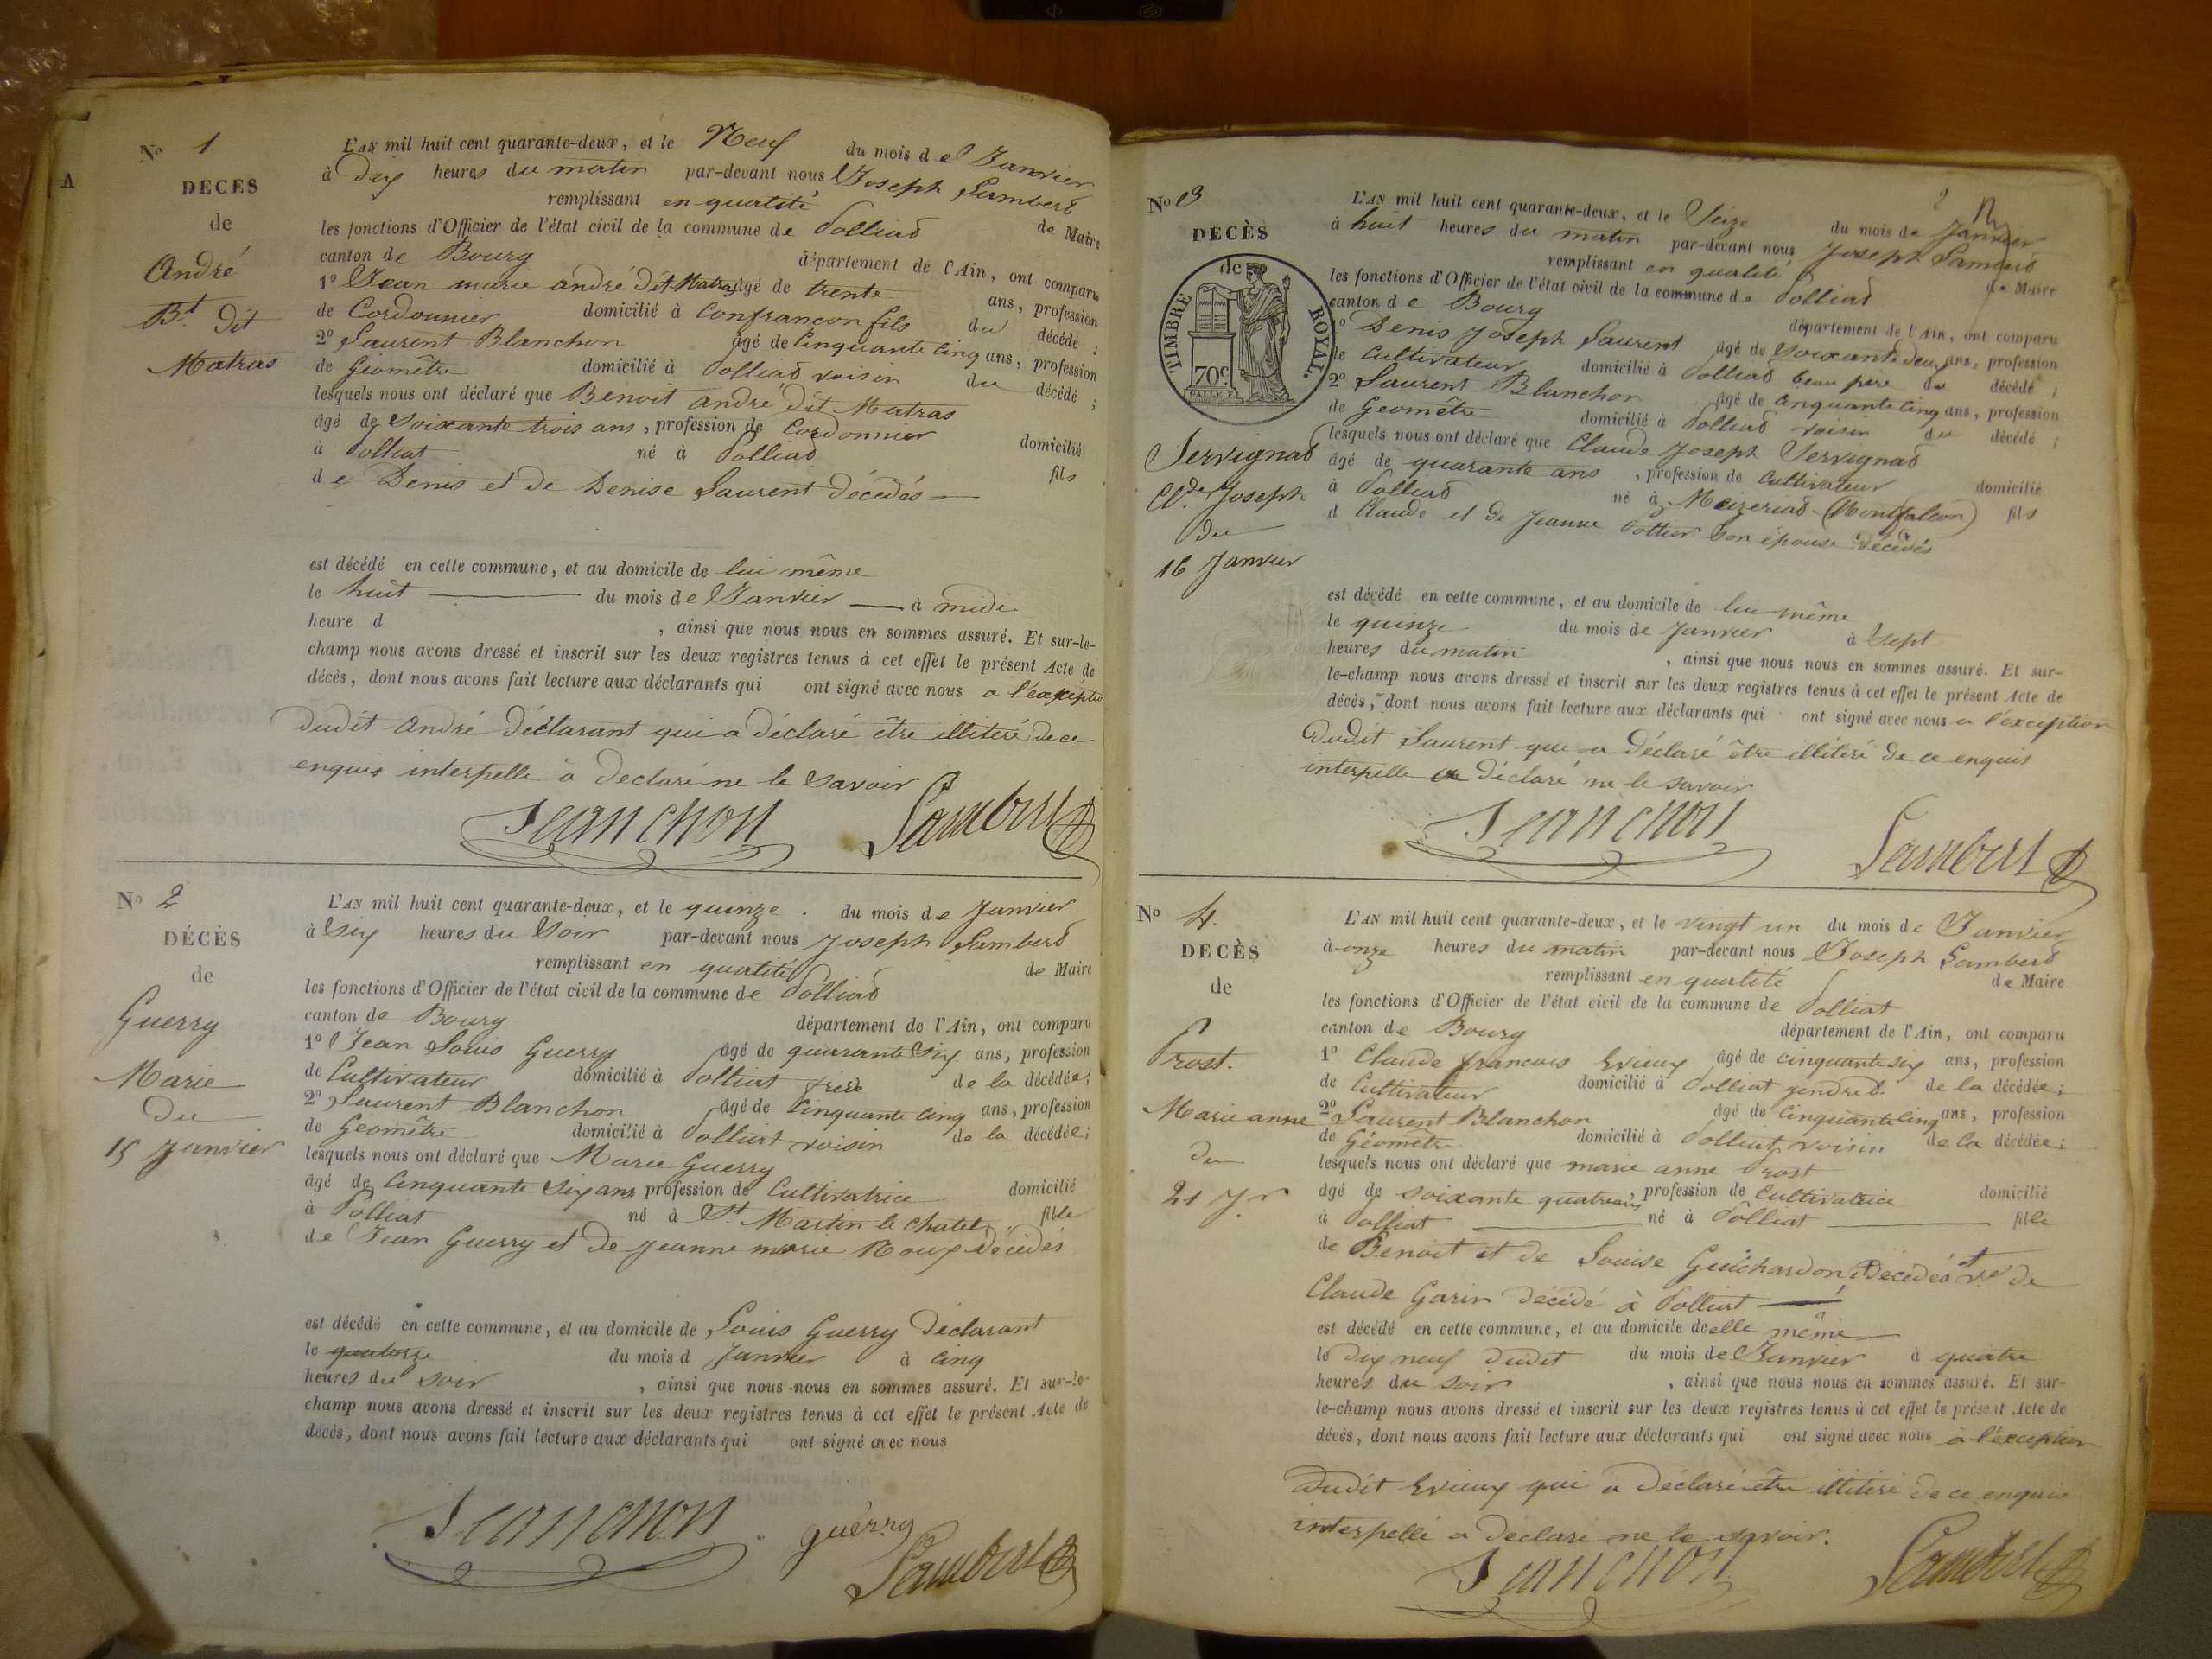 A
No 1
DÉCÈS
de
André
Bt. dit
Matras
L'AN mil huit cent quarante-deux, et le Neuf du mois de Janvier
à dix heures du matin par-devant nous Joseph Lambert
remplissant en qualité de Maire
les fonctions d'Officier de l'état civil de la commune de Polliat
canton de Bourg département de l'Ain, ont comparu
1º Jean marie andré dit Matras âgé de trente ans, profession
de Cordonnier domicilié à Confrançon fils du décédé ;
2º Laurent Blanchon âgé de Cinquante Cinq ans, profession
de Géomêtre domicilié à Polliat voisin du décédé ;
lesquels nous ont déclaré que Benoit andré dit Matras
âgé de Soixante trois ans, profession de Cordonnier domicilié
à Polliat né à Polliat fils
de Denis et de Denise Laurent décédés
est décédé en cette commune, et au domicile de lui même
le huit du mois de Janvier à midi
heure d , ainsi que nous nous en sommes assuré. Et sur-le-
champ nous avons dressé et inscrit sur les deux registres tenus à cet effet le présent Acte de
décès, dont nous avons fait lecture aux déclarants qui ont signé avec nous a l'exception
dudit André déclarant qui a déclaré être illitéré de ce
enquis interpellé a declaré ne le savoir
Blanchon Lambert
No 2
DÉCÈS
de
Guerry
Marie
du
15 Janvier
L'AN mil huit cent quarante-deux, et le quinze du mois de Janvier
à Six heures du Soir par-devant nous Joseph Lambert
remplissant en qualité de Maire
les fonctions d'Officier de l'état civil de la commune de Polliat
canton de Bourg département de l'Ain, ont comparu
1º Jean Louis Guerry âgé de quarante Six ans, profession
de Cultivateur domicilié à Polliat frère de la décédée ;
2º Laurent Blanchon âgé de Cinquante Cinq ans, profession
de Géomêtre domicilié à Polliat voisin de la décédée ;
lesquels nous ont déclaré que Marie Guerry
âgé de Cinquante Six ans profession de Cultivatrice domicilié
à Polliat né à St. Martin le Chatel fille
de Jean Guerry et de Jeanne marie Roux décédés
est décédé en cette commune, et au domicile de Louis Guerry déclarant
le quatorze du mois d Janvier à Cinq
heures du Soir , ainsi que nous nous en sommes assuré. Et sur-le-
champ nous avons dressé et inscrit sur les deux registres tenus à cet effet le présent Acte de
décès, dont nous avons fait lecture aux déclarants qui ont signé avec nous
Blanchon guérry
Lambert
2
No 3
DECÈS
de
TIMBRE ROYAL.
70c
Servignat
Cl.de Joseph
du
16 Janvier
L'AN mil huit cent quarante-deux, et le Seize du mois de Janvier
à huit heures du matin par-devant nous Joseph Lambert
remplissant en qualité de Maire
les fonctions d'Officier de l'état civil de la commune de Polliat
canton de Bourg département de l'Ain, ont comparu
1º Denis Joseph Laurent âgé de Soixante deux ans, profession
de Cultivateur domicilié à Polliat beau père du décédé ;
2º Laurent Blanchon âgé de Cinquante Cinq ans, profession
de Geomêtre domicilié à Polliat voisin du décédé ;
lesquels nous ont déclaré que Claude Joseph Servignat
âgé de quarante ans , profession de Cultivateur domicilié
à Polliat né à Mizeriat (Montfalcon) fils
d Claude et de Jeanne Pottier Son épouse décédés
est décédé en cette commune, et au domicile de lui même
le quinze du mois de Janvier à Sept
heures du matin , ainsi que nous nous en sommes assuré. Et sur-
le-champ nous avons dressé et inscrit sur les deux registres tenus à cet effet le présent Acte de
décès, dont nous avons fait lecture aux déclarants qui ont signé avec nous a l'exception
Dudit Laurent que a déclaré être illitéré de ce enquis
interpellé a déclaré ne le savoir
Blanchon Lambert
No 4.
DECÈS
de
Prost.
Marie anne
du
21 Jr
L'AN mil huit cent quarante-deux, et le vingt un du mois de Janvier
à onze heures du matin par-devant nous Joseph Lambert
remplissant en qualité de Maire
les fonctions d'Officier de l'état civil de la commune de Polliat
canton de Bourg département de l'Ain, ont comparu
1º Claude françois Evieux âgé de cinquante six ans, profession
de Cultivateur domicilié à Polliat gendre de la décédée ;
2º Laurent Blanchon âgé de Cinquante Cinq ans, profession
de Géomêtre domicilié à Polliat voisin de la décédée ;
lesquels nous ont déclaré que marie anne Prost
âgé de soixante quatre ans, profession de Cultivatrice domicilié
à Polliat né à Polliat fille
de Benoit et de Louise Guichardon décédés et ve de
Claude Garin décédé à Polliat
est décédé en cette commune, et au domicile de elle même
le dix neuf dudit du mois de Janvier à quatre
heures du soir , ainsi que nous nous en sommes assuré. Et sur-
le-champ nous avons dressé et inscrit sur les deux registres tenus à cet effet le présent Acte de
décès, dont nous avons fait lecture aux déclarants qui ont signé avec nous à l'exception
dudit Evieux qui a déclaré être illitéré de ce enquis
interpellé a déclaré ne le savoir.
Blanchon Lambert